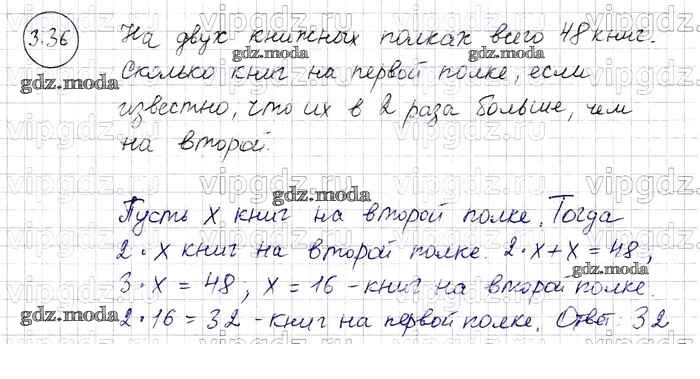 3.36 На двух книжных полках всего 48 книг.
Сколько книг на первой полке, если
известно, что их в 2 раза больше, чем
на второй.
Пусть х книг на второй полке. Тогда
2·х книг на второй полке. 2·х+х=48;
3·х=48; х=16 - книг на второй полке.
2·16=32 - книг на первой полке. Ответ: 32